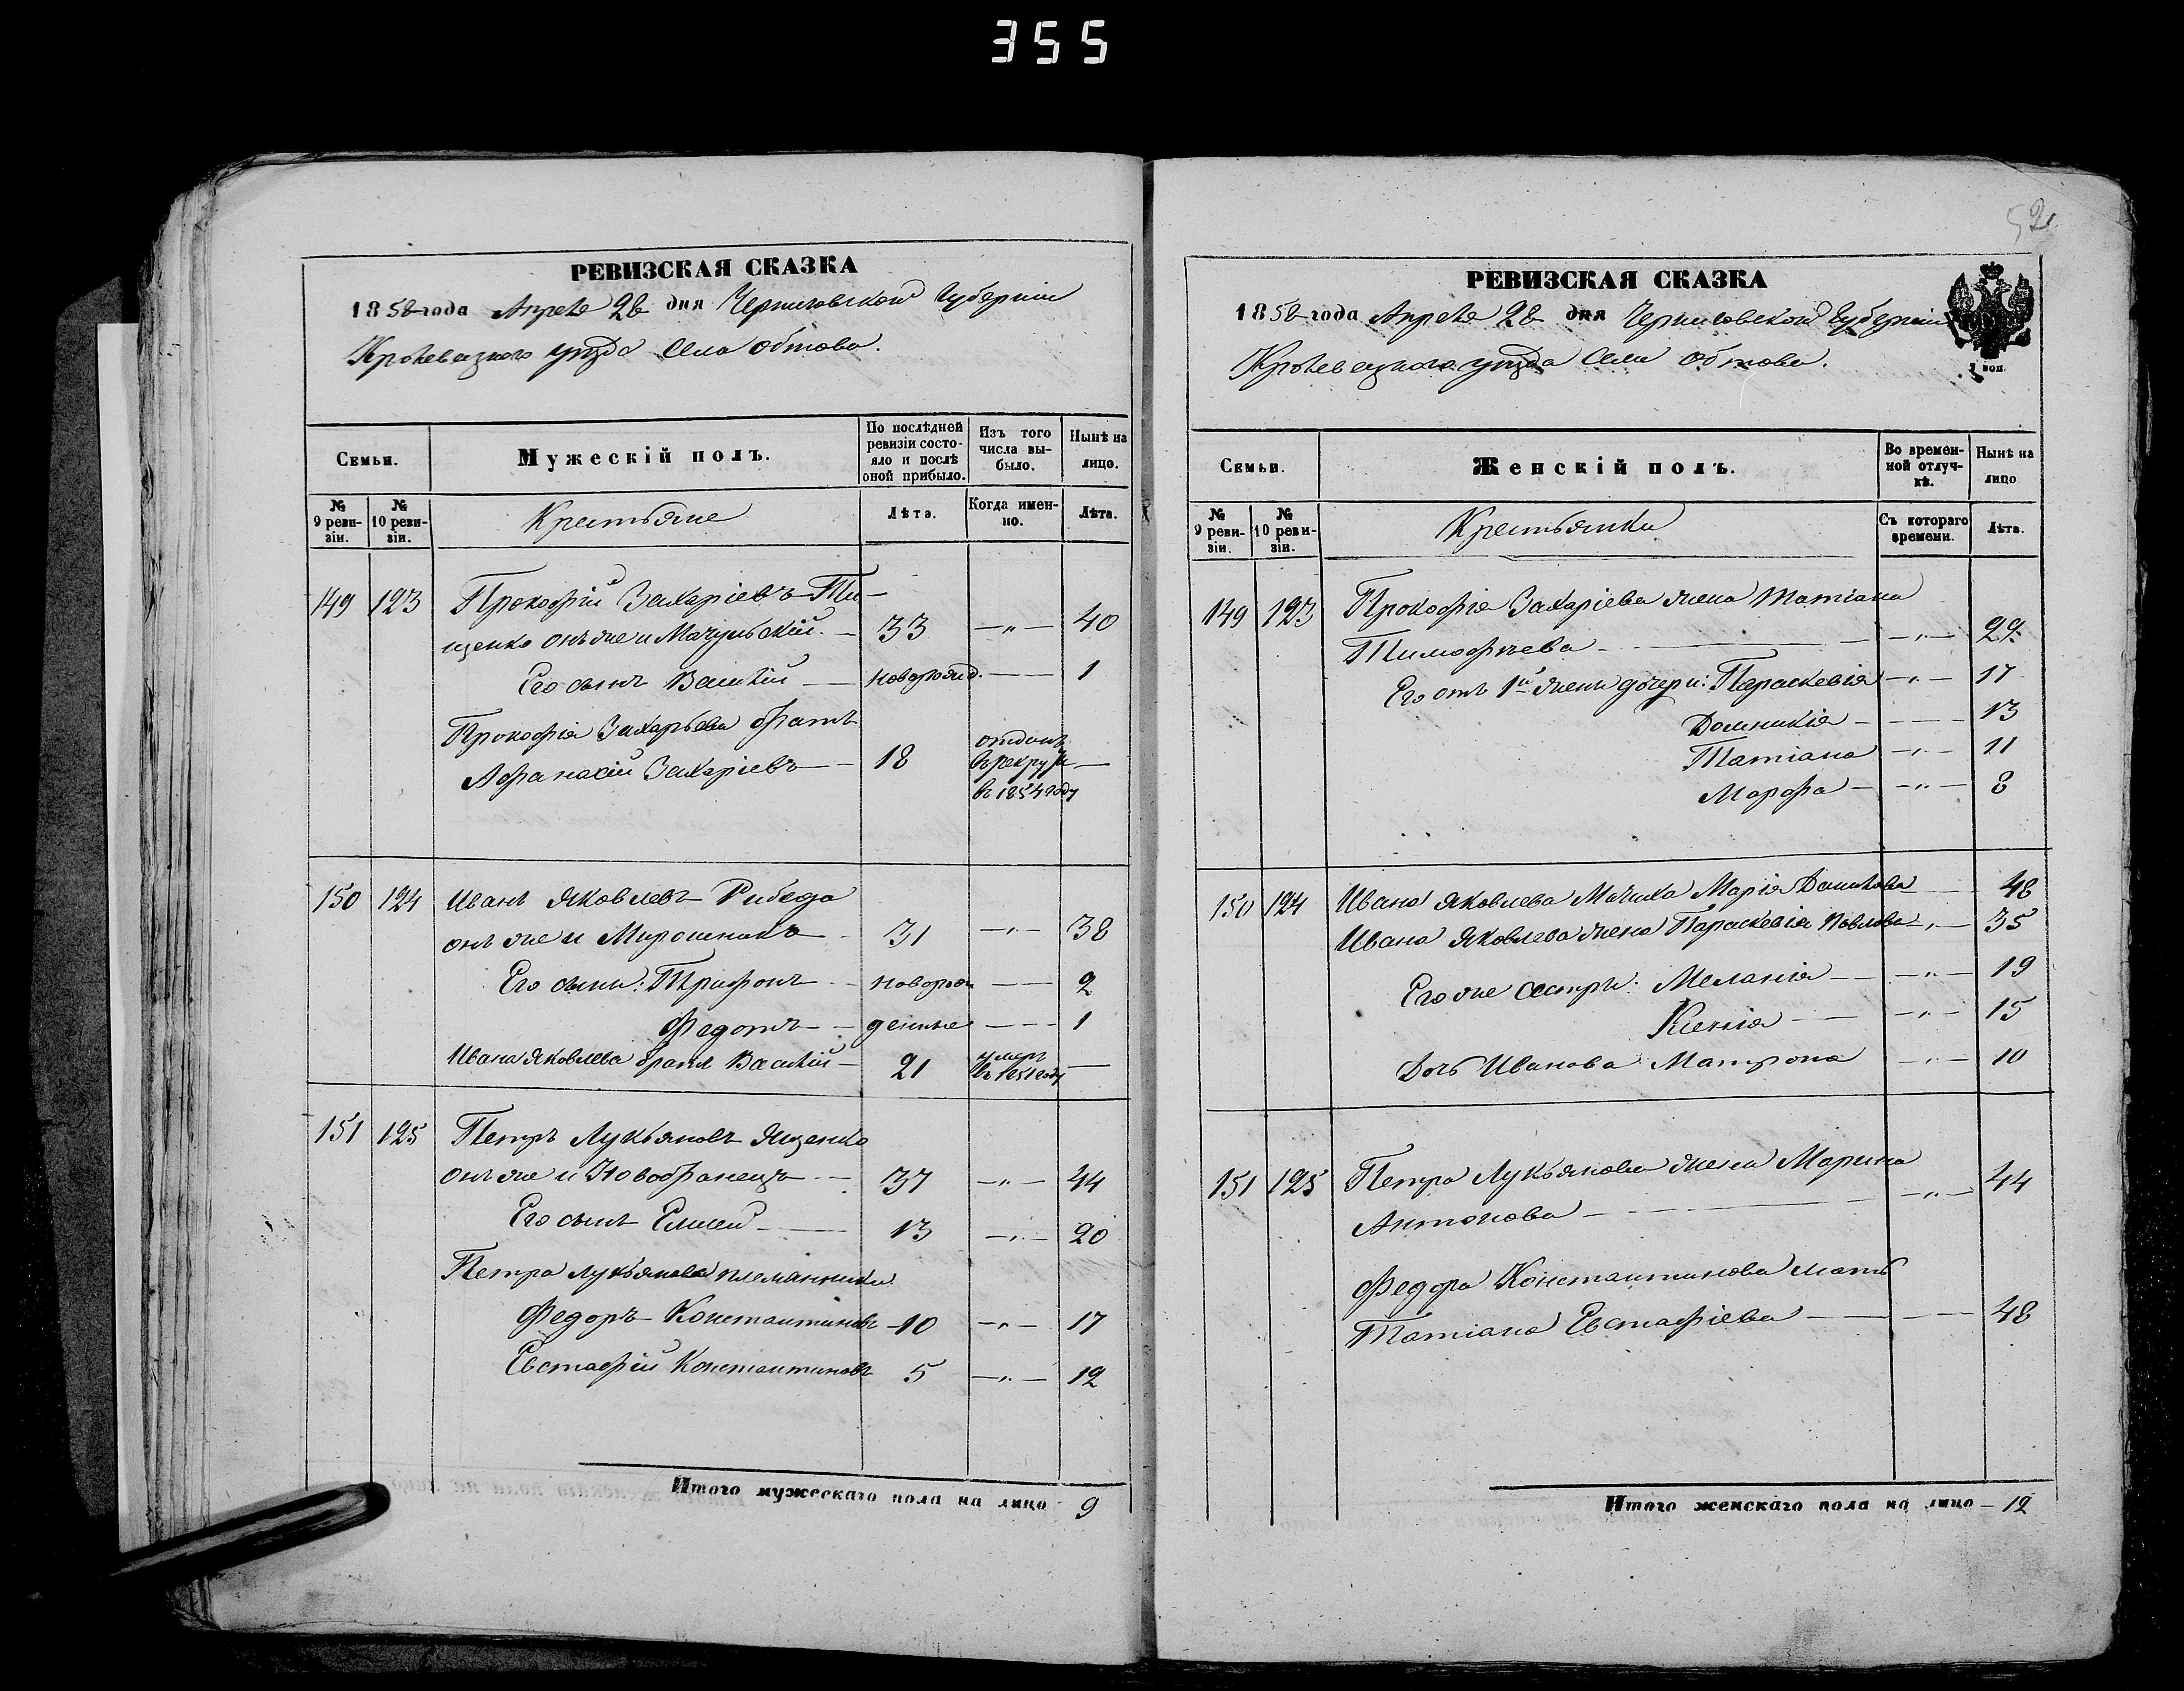 355
52
РЕВИЗСКАЯ СКАЗКА
1858 года Апреля 28 дня Черниговской Губернии
Кролевецкого уезда Села Обтова.
Семьи.
Мужескій полъ.
По послѣдней ревизіи состояло и послѣ оной прибыло.
Изъ того числа выбыло.
Нынѣ на лицо.
№ 9 ревизіи.
№ 10 ревизіи.
Крестьяне
Лѣта.
Когда именно.
Лѣта.
149 123 Прокофій Захаріевъ Ти-
щенко онъ же и Мачульскій. — 33 —„— 40
Его сынъ Василій — новорожд. — — 1
Прокофія Захарьева братъ
Афанасій Захаріевъ — 18 отданъ въ рекруты в 1854 году —
150 124 Иванъ Яковлевъ Рибеда
онъ же и Мирошникъ — 31 —„— 38
Его сыны: Трифонъ — новорож — — 2
Федотъ — денные — — 1
Ивана Яковлева братъ Василій — 21 умеръ въ 1851 году —
151 125 Петръ Лукьяновъ Ященко
онъ же и Новобранецъ — 37 —„— 44
Его сынъ Елисей — 13 —„— 20
Петра Лукьянова племянники
Федоръ Константиновъ — 10 —„— 17
Евстафій Константиновъ 5 —„— 12
Итого мужескаго пола на лицо 9
РЕВИЗСКАЯ СКАЗКА
1858 года Апреля 28 дня Черниговской Губернии
Кролевецкого уезда Села Обтова.
Семьи.
Женскій полъ.
Во временной отлучкѣ.
Нынѣ на лицо
№ 9 ревизіи.
№ 10 ревизіи.
Крестьянки
Съ котораго времени.
Лѣта.
149 123 Прокофія Захаріева жена Татіана
Тимофѣева — —„— 29.
Его отъ 1й жены дочери: Параскевія —„— 17
Домникія — — — 13
Татіана —„— 11
Марфа — —„— 8
150 124 Ивана Яковлева Мачиха Марія Данилова — 48
Ивана Яковлева жена Параскевія Павлова —„— 35
Его же сестры: Меланія — —„— 19
Ксенія — —„— 15
Дочь Иванова Матрона —„— 10
151 125 Петра Лукьянова жена Марина
Антонова — —„— 44
Федора Константинова мать
Татіана Евстафіева — — 48
Итого женскаго пола на лицо — 12